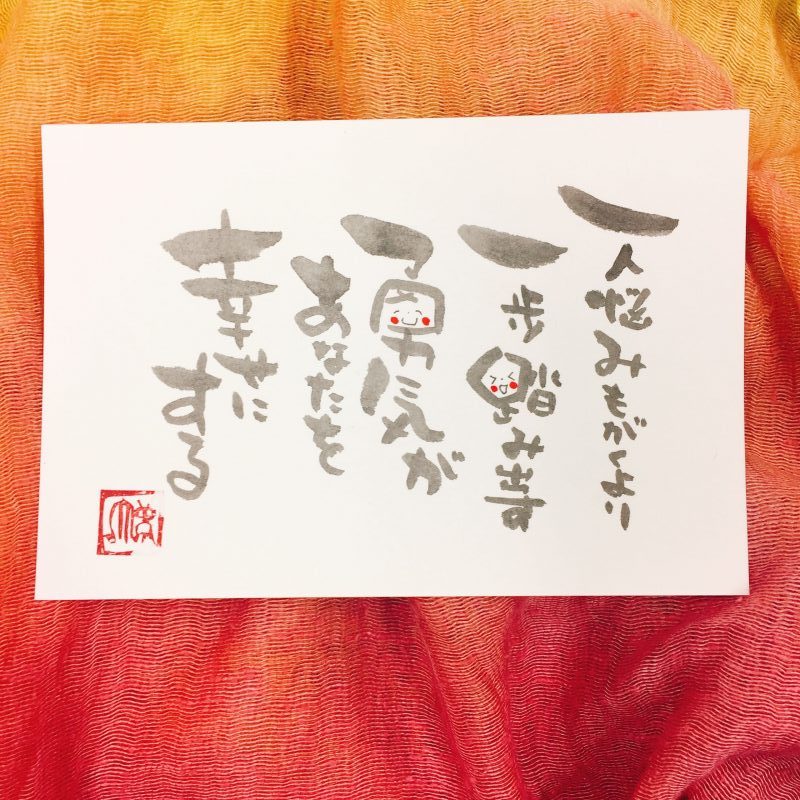 一人悩みもがくより
一歩踏み出す
勇気が
あなたを
幸せに
する